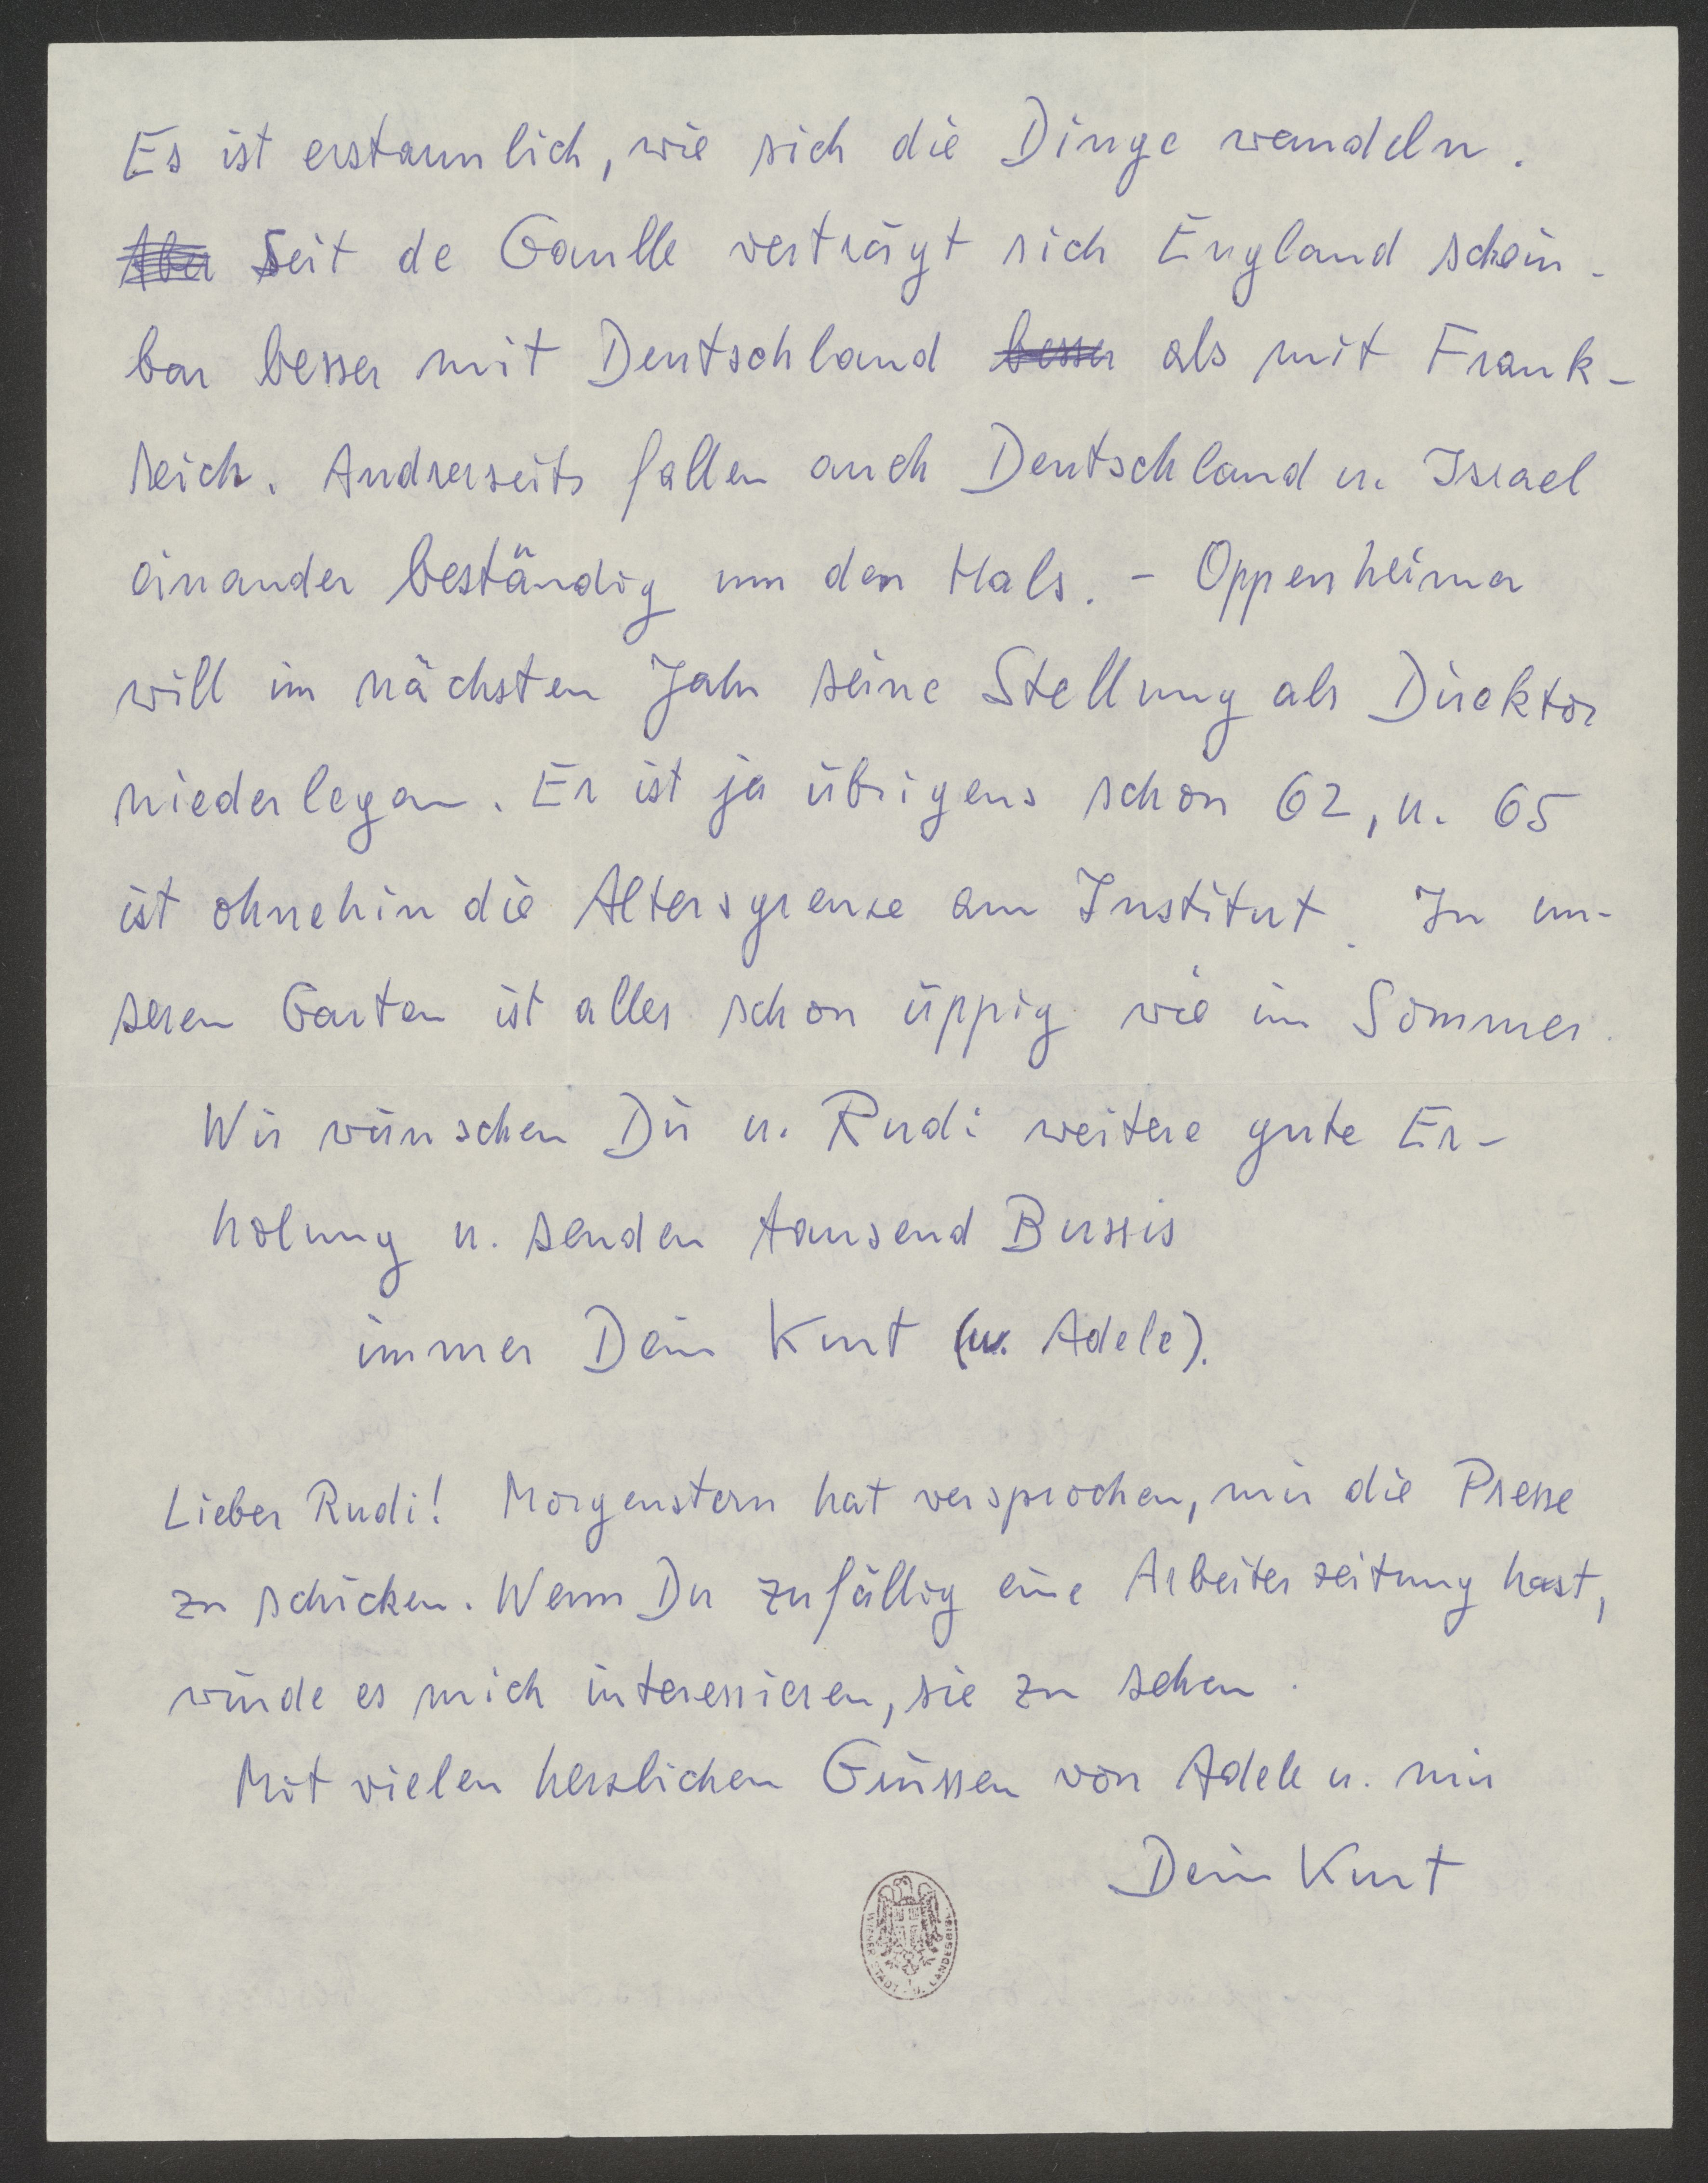 Es ist erstaunlich, wie sich die Dinge wandeln.
Aber Seit de Gaulle verträgt sich England schein-
bar besser mit Deutschland besser als mit Frank-
reich. Andrerseits fallen auch Deutschland u. Israel
einander beständig um den Hals. – Oppenheimer
will im nächsten Jahr seine Stellung als Direktor
niederlegen. Er ist ja übrigens schon 62, u. 65
ist ohnehin die Altersgrenze am Institut. In un-
seren Garten ist alles schon üppig wie im Sommer.
Wir wünschen Dir u. Rudi weitere gute Er-
holung u. senden tausend Bussis
immer Dein Kurt (u. Adele).
Lieber Rudi! Morgenstern hat versprochen, mir die Presse
zu schicken. Wenn Du zufällig eine Arbeiterzeitung hast,
würde es mich interessieren, sie zu sehen.
Mit vielen herzlichen Grüssen von Adele u. mir
Dein Kurt
WIENER STADT- U. LANDESBIBL.